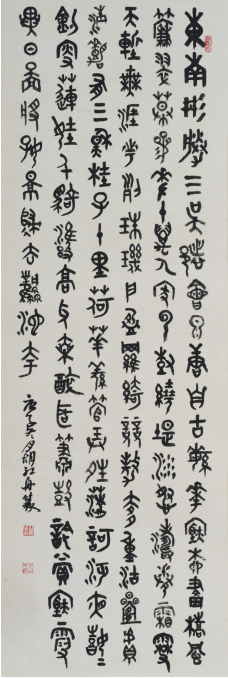 東南形勝三吳都會錢唐自古繁華煙柳畫橋風
簾翠幕參差十萬人家雲樹繞堤沙怒濤卷霜雪
天塹無涯市列珠璣戶盈羅綺競豪奢重湖疊巘
清嘉有三秋桂子十里荷華羌管弄晴菱歌泛夜嬉嬉
釣叟蓮娃千騎擁高牙乘醉聽簫鼓吟賞煙霞
異日圖將好景歸去鳳池夸
庚寅